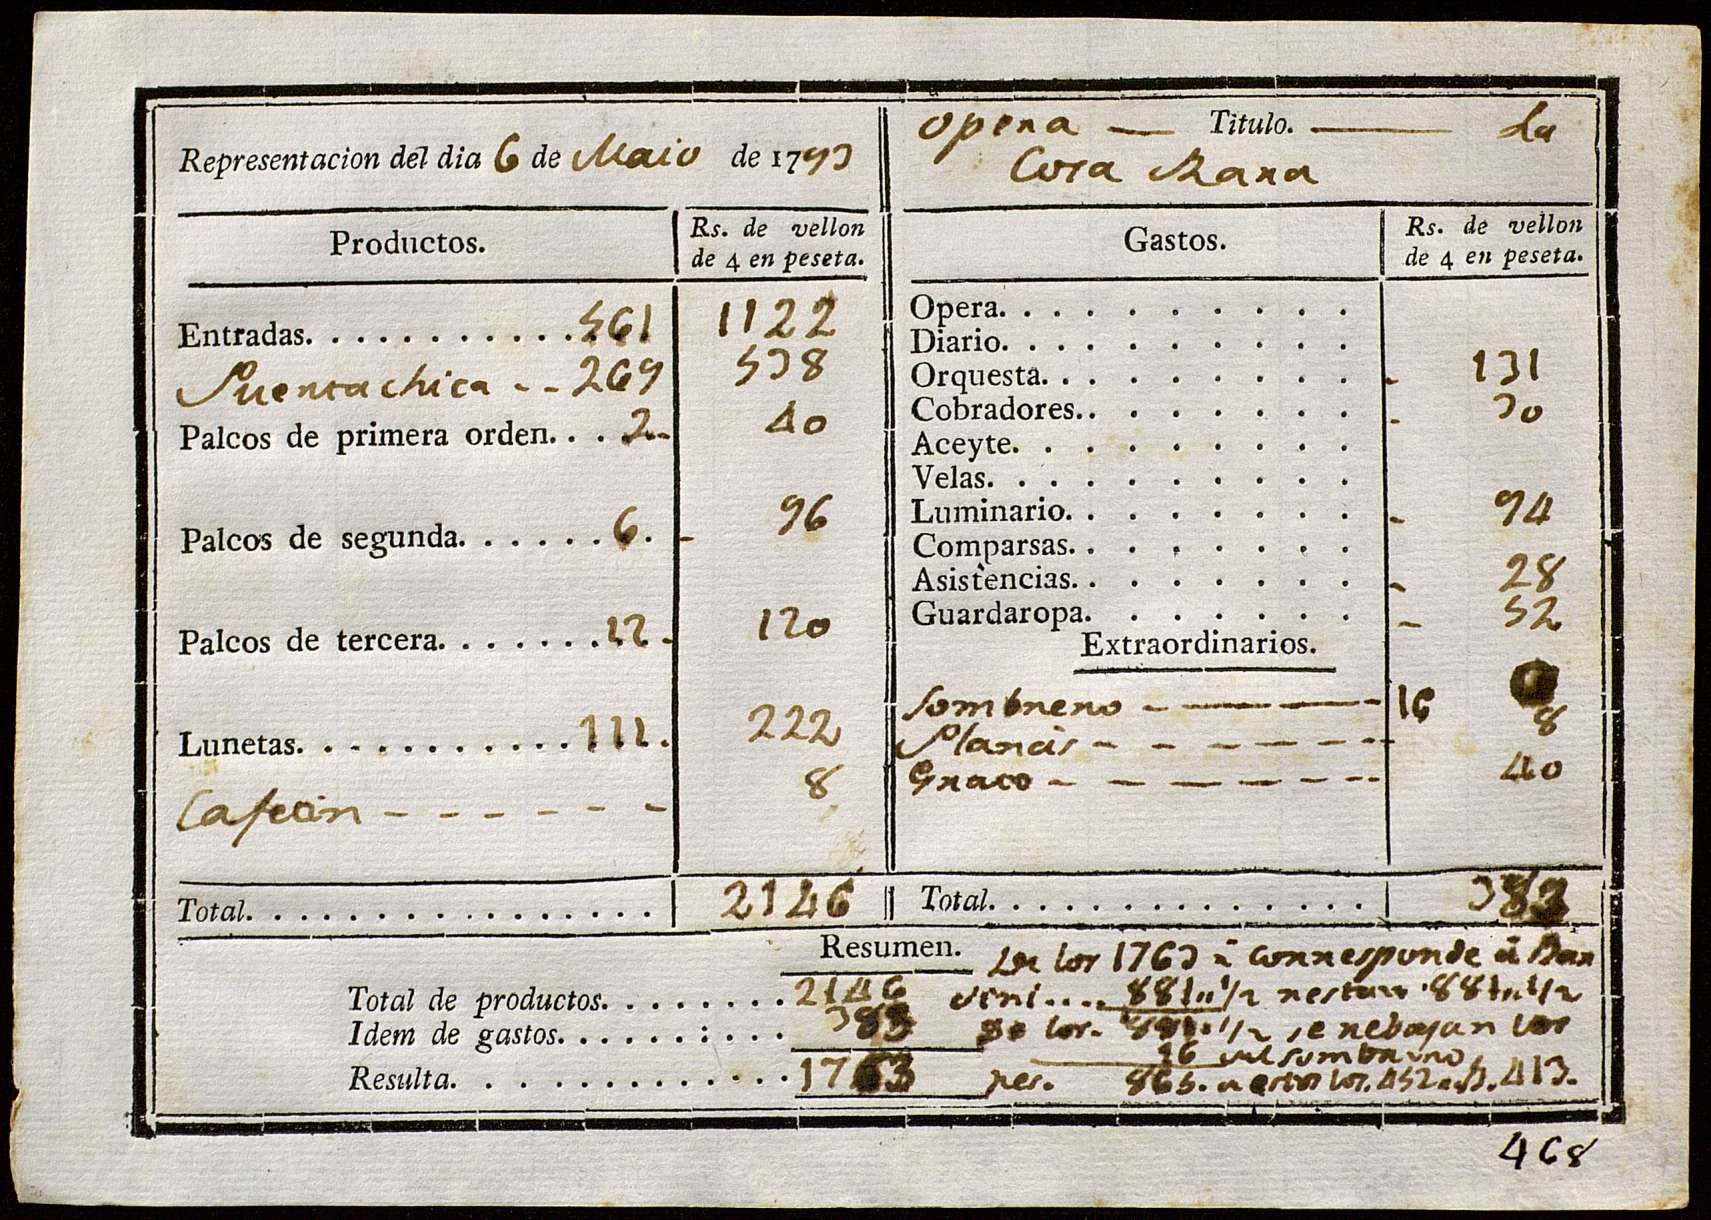 Representacion del dia 6 de Maio de 1793
Opera — Titulo. — La
Cosa Rara
Productos.
Rs. de vellon
de 4 en peseta.
Entradas. . . . . . . . . . . 561 1122
Puerta chica - - 269 538
Palcos de primera orden. . . . 2 40
Palcos de segunda. . . . . . 6. 96
Palcos de tercera. . . . . . . 12 120
Lunetas. . . . . . . . . . . . 111. 222
Cafetin - - - - - - 8
Total. . . . . . . . . . . . . . . . . 2146
Gastos.
Rs. de vellon
de 4 en peseta.
Opera. . . . . . . . .
Diario. . . . . . . . .
Orquesta. . . . . . . . 131
Cobradores. . . . . . . 30
Aceyte. . . . . . . . .
Velas. . . . . . . . .
Luminario. . . . . . . 94
Comparsas. . . . . . .
Asistencias. . . . . . . 28
Guardaropa. . . . . . . 52
Extraordinarios.
Sombrero - — 16
Plancis - - - - - - 8
Graco - - - - - - 40
Total. . . . . . . . . . . . . . . 383
Resumen.
Total de productos. . . . . . . . 2146
Idem de gastos. . . . . . : . . . . 383
Resulta. . . . . . . . . . . . . . 1763
De los 1763 corresponde á Ban
dini.... 881 1/2 restan 881 1/2
De los 881 1/2 se rebajan los
16 del sombrero
res. 865. 452 413.
468